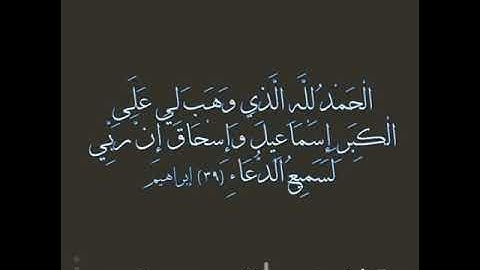 الْحَمْدُ لِلَّهِ الَّذِي وَهَبَ لِي عَلَى
الْكِبَرِ إِسْمَاعِيلَ وَإِسْحَاقَ إِنَّ رَبِّي
لَسَمِيعُ الدُّعَاءِ (٣٩) إبراهيم